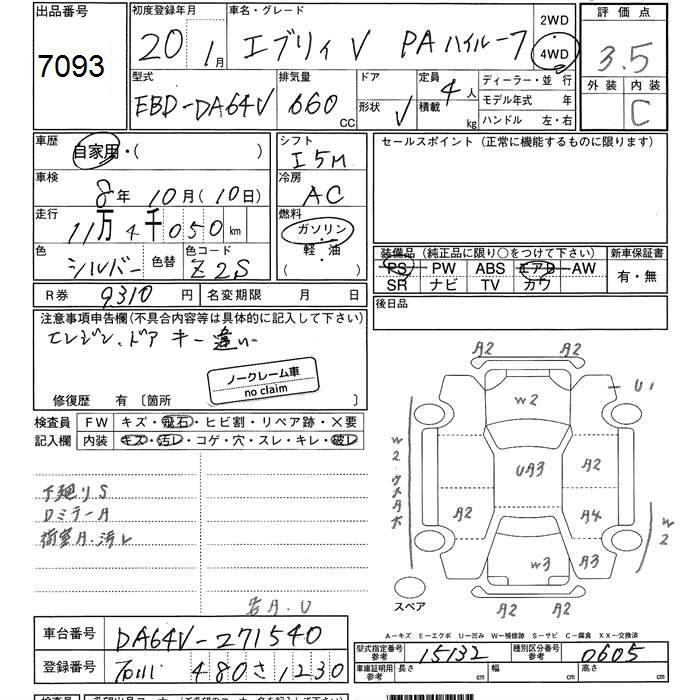 出品番号 7093
初度登録年月 20 1月
車名・グレード エブリィV PAハイルーフ
2WD 4WD
評価点 3.5
外装 内装 C
型式 EBD-DA64V
排気量 660 CC
ドア形状 V
定員積載 4人 kg
ディーラー・並 行
モデル年式 年
ハンドル 左・右
車歴 自家用・( )
シフト I5M
セールスポイント (正常に機能するものに限ります)
車検 8年10月(10日)
冷房 AC
走行 11万4千050km
燃料 ガソリン 軽・油 ( )
色 シルバー 色替 色コード Z2S
装備品 (純正品に限り○をつけて下さい) 新車保証書
PS PW ABS エアB AW
SR ナビ TV カワ
有・無
R券 9310円 名変期限 月 日
後日品
注意事項申告欄(不具合内容等は具体的に記入して下さい)
エンジン、ドアキー違い
ノークレーム車
no claim
修復歴 有 〔箇所 〕
検査員記入欄
FW キズ・飛石・ヒビ割・リペア跡・×要
内装 キズ・汚レ・コゲ・穴・スレ・キレ・破レ
下廻りS
DミラーA
荷室A・汚レ
A2 A2
U1
W2
UA3
A2
A2
A4
W2
W3
A2 A3
スペア
A-キズ E-エクボ U-凹み W-補修跡 S-サビ C-腐食 XX-交換済
車台番号 DA64V-271540
登録番号 石川 480さ1230
型式指定番号 参考 15132 種別区分番号 参考 0605
車庫証明用 参考 長さ cm 幅 cm 高さ cm